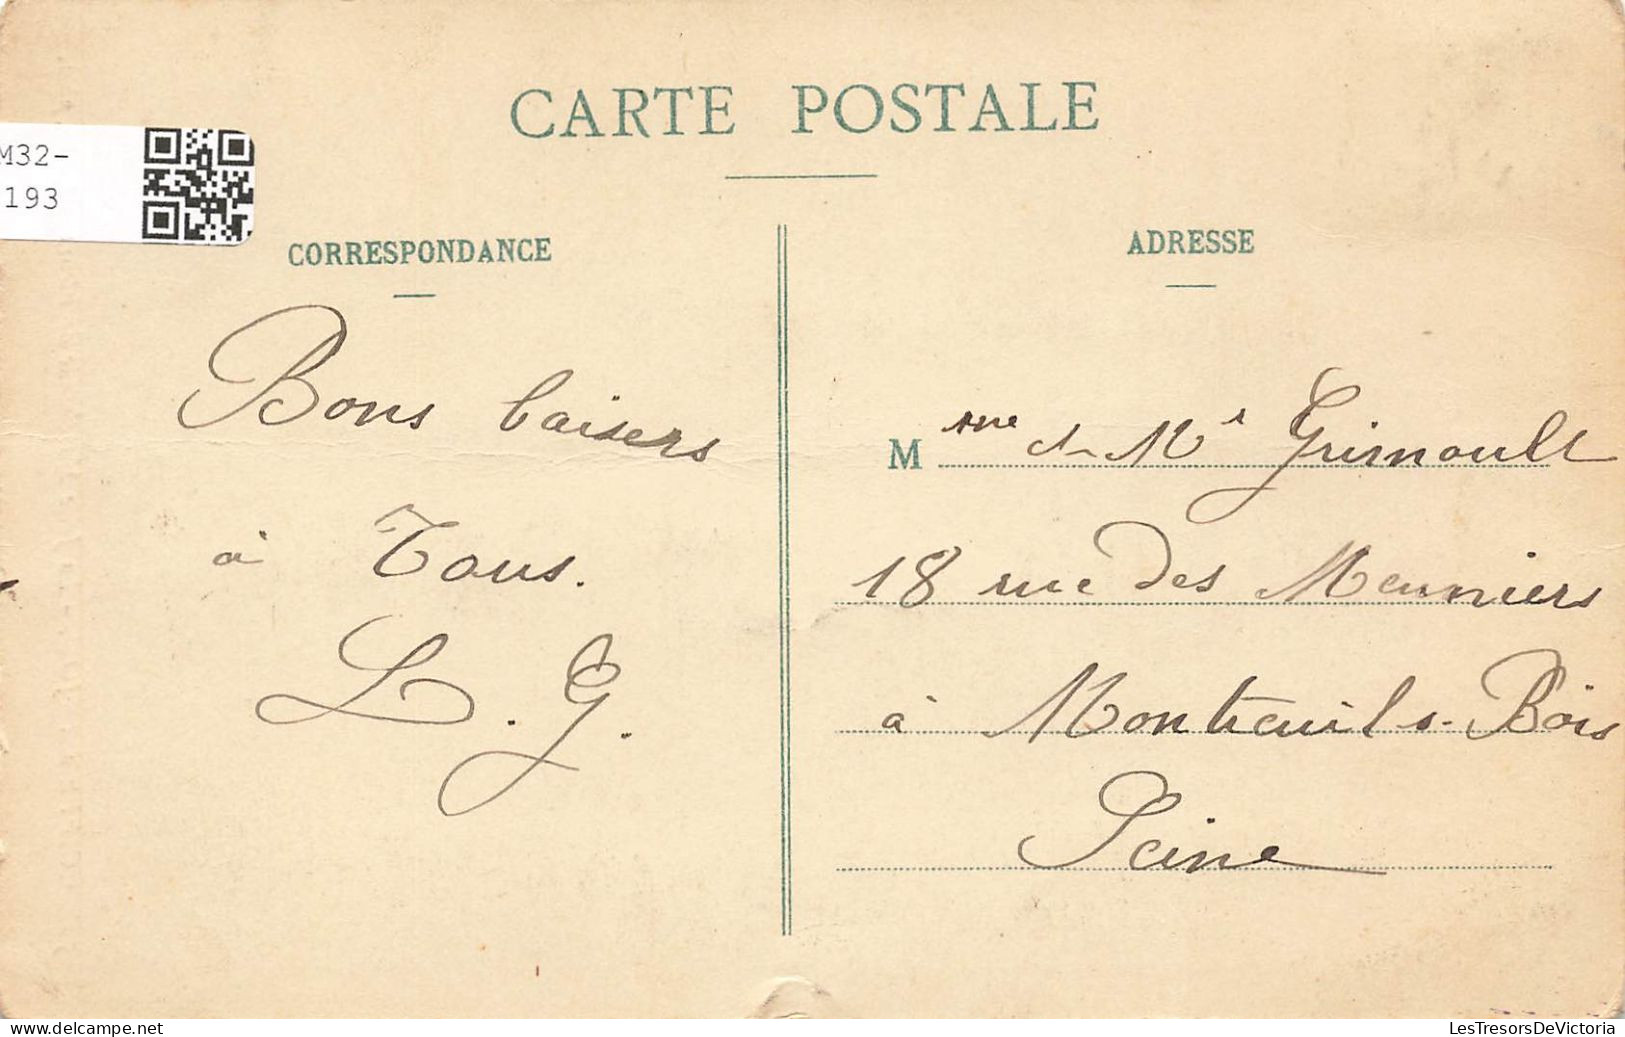 CARTE POSTALE
M32-
193
CORRESPONDANCE
Bons baisers
à Tous.
L. G.
ADRESSE
Mme et Mr Grimault
18 rue des Meuniers
à Montreuil s. Bois
Seine
www.delcampe.net
LesTresorsDeVictoria